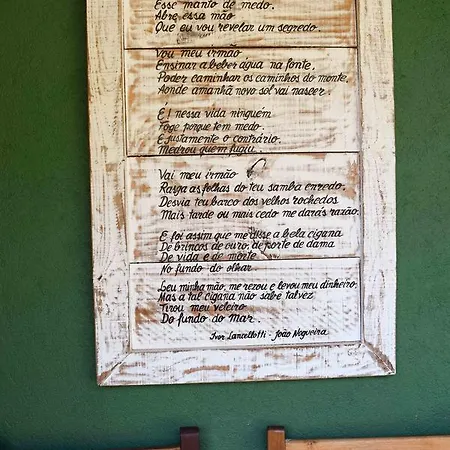 Esse manto de medo.
Abre essa mão
Que eu vou revelar um segredo.
Vou meu irmão
Ensinar a beber água na fonte,
Poder caminhar os caminhos do monte,
Aonde amanhã novo sol vai nascer.
É! nessa vida ninguém
Foge porque tem medo.
E justamente o contrário.
Medrou quem fugiu.
Vai meu irmão
Rasga as folhas do teu samba enredo,
Desvia teu barco dos velhos rochedos
Mais tarde ou mais cedo me darás razão.
E foi assim que me disse a bela cigana
De brincos de ouro, de porte de dama
De vida e de morte
No fundo do olhar.
Leu minha mão, me rezou e levou meu dinheiro,
Mas a tal cigana não sabe talvez
Tirou meu veleiro
Do fundo do mar.
Ivor Lancellotti - João Nogueira